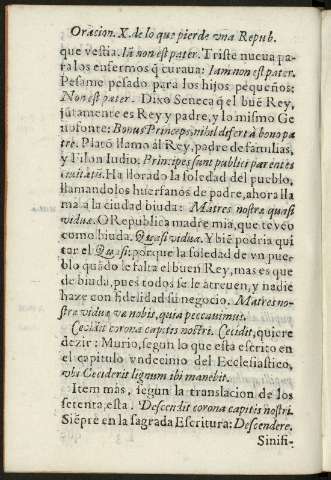 Oracion. X. de lo que pierde vna Repub.
que vestia. Iā non est pater. Triste nueua pa-
ra los enfermos q̃ curaua: Iam non est pater.
Pesame pesado para los hijos pequeños:
Non est pater. Dixo Seneca q̃ el buē Rey,
jũtamente es Rey y padre, y lo mismo Ge
nofonte: Bonus Princeps, nihil defert à bono pa
tre. Platõ llamo àl Rey, padre de familias,
y Filon Iudio: Principes sunt publici parentes
ciuitatis. Ha llorado la soledad del pueblo,
llamandolos huerfanos de padre, ahora lla
ma à la ciudad biuda: Matres nostræ quasi
viduæ. O Republica madre mia, que te veo
como biuda. Quasi viduæ. Y biē podria qui
tar el Quasi: porque la soledad de vn pue-
blo quãdo le falta el buen Rey, mas es que
de biuda, pues todos se le atreuen, y nadie
haze con fidelidad su negocio. Matres no-
stræ viduæ væ nobis, quia peccauimus.
Cecidit corona capitis nostri. Cecidit, quiere
dezir: Murio, segun lo que esta escrito en
el capitulo vndecimo del Ecclesiastico,
vbi Ceciderit lignum ibi manebit.
Item mas, segun la translacion de los
setenta, esta. Descendit corona capitis nostri.
Siēpre en la sagrada Escritura: Descendere.
Sinifi-